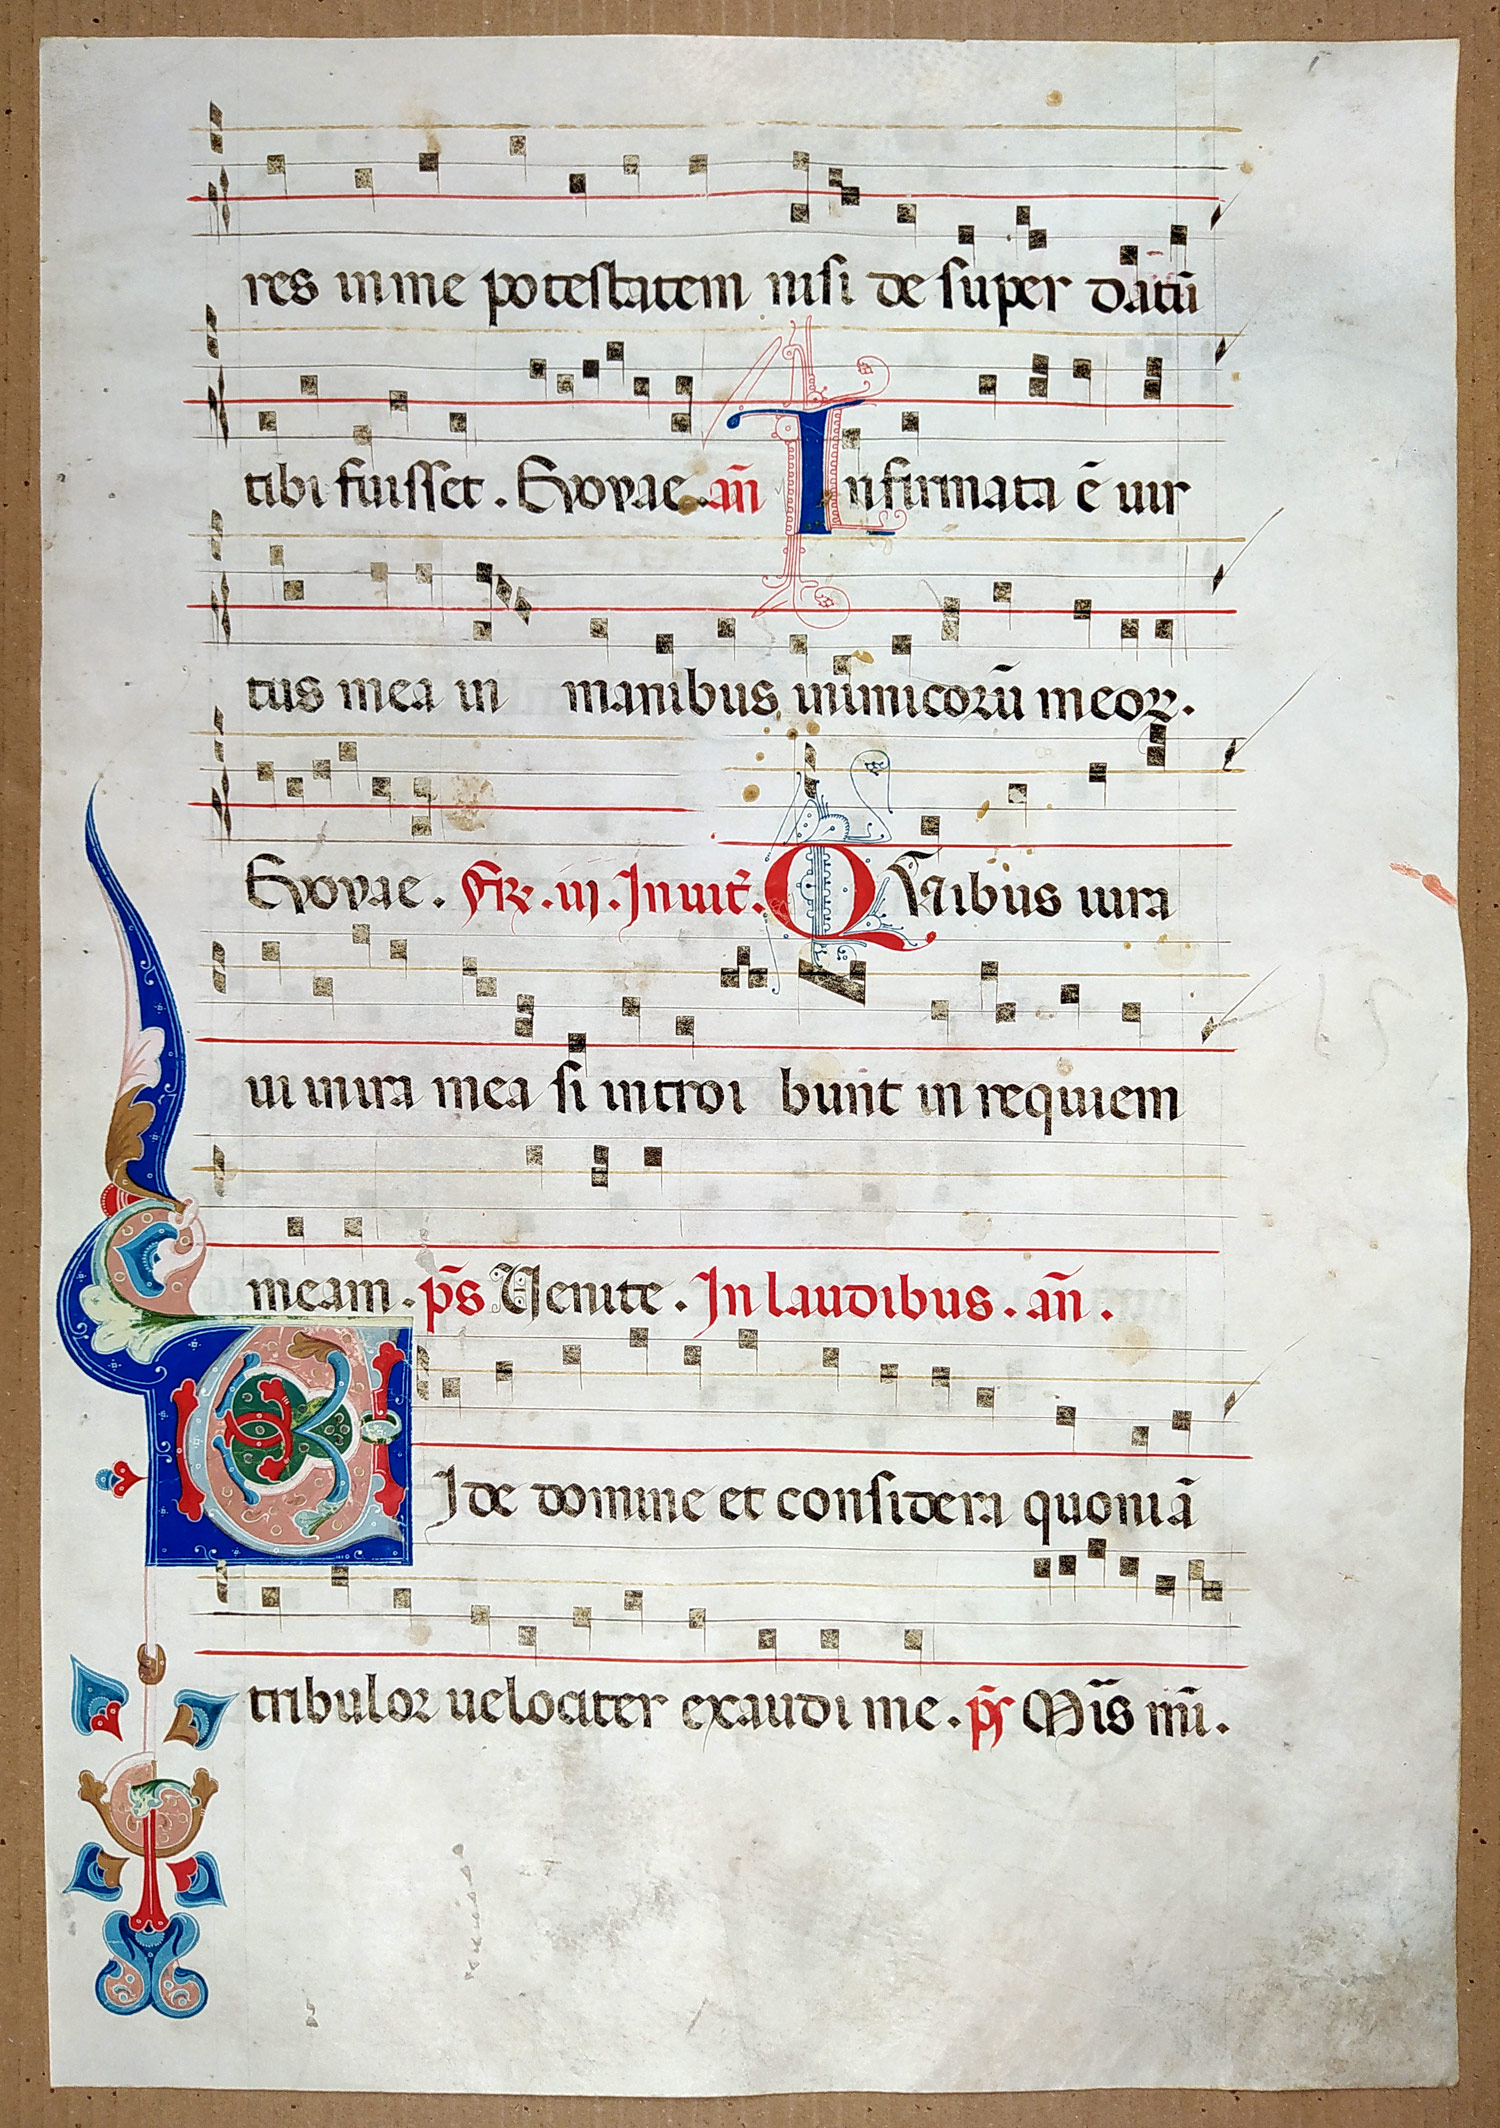 res in me potestatem nisi de super datū
tibi fuisset. Evovae. añ Infirmata ē uir
tus mea in manibus inimicorū meoꝝ.
Evovae. Fr̄. iij. Inuit̄. Quibus iura
ui in ira mea si introi bunt in requiem
meam. p̄s Venite. In laudibus. añ.
VIde domine et considera quoniā
tribulor uelociter exaudi me. p̄s M̄is m̄i.